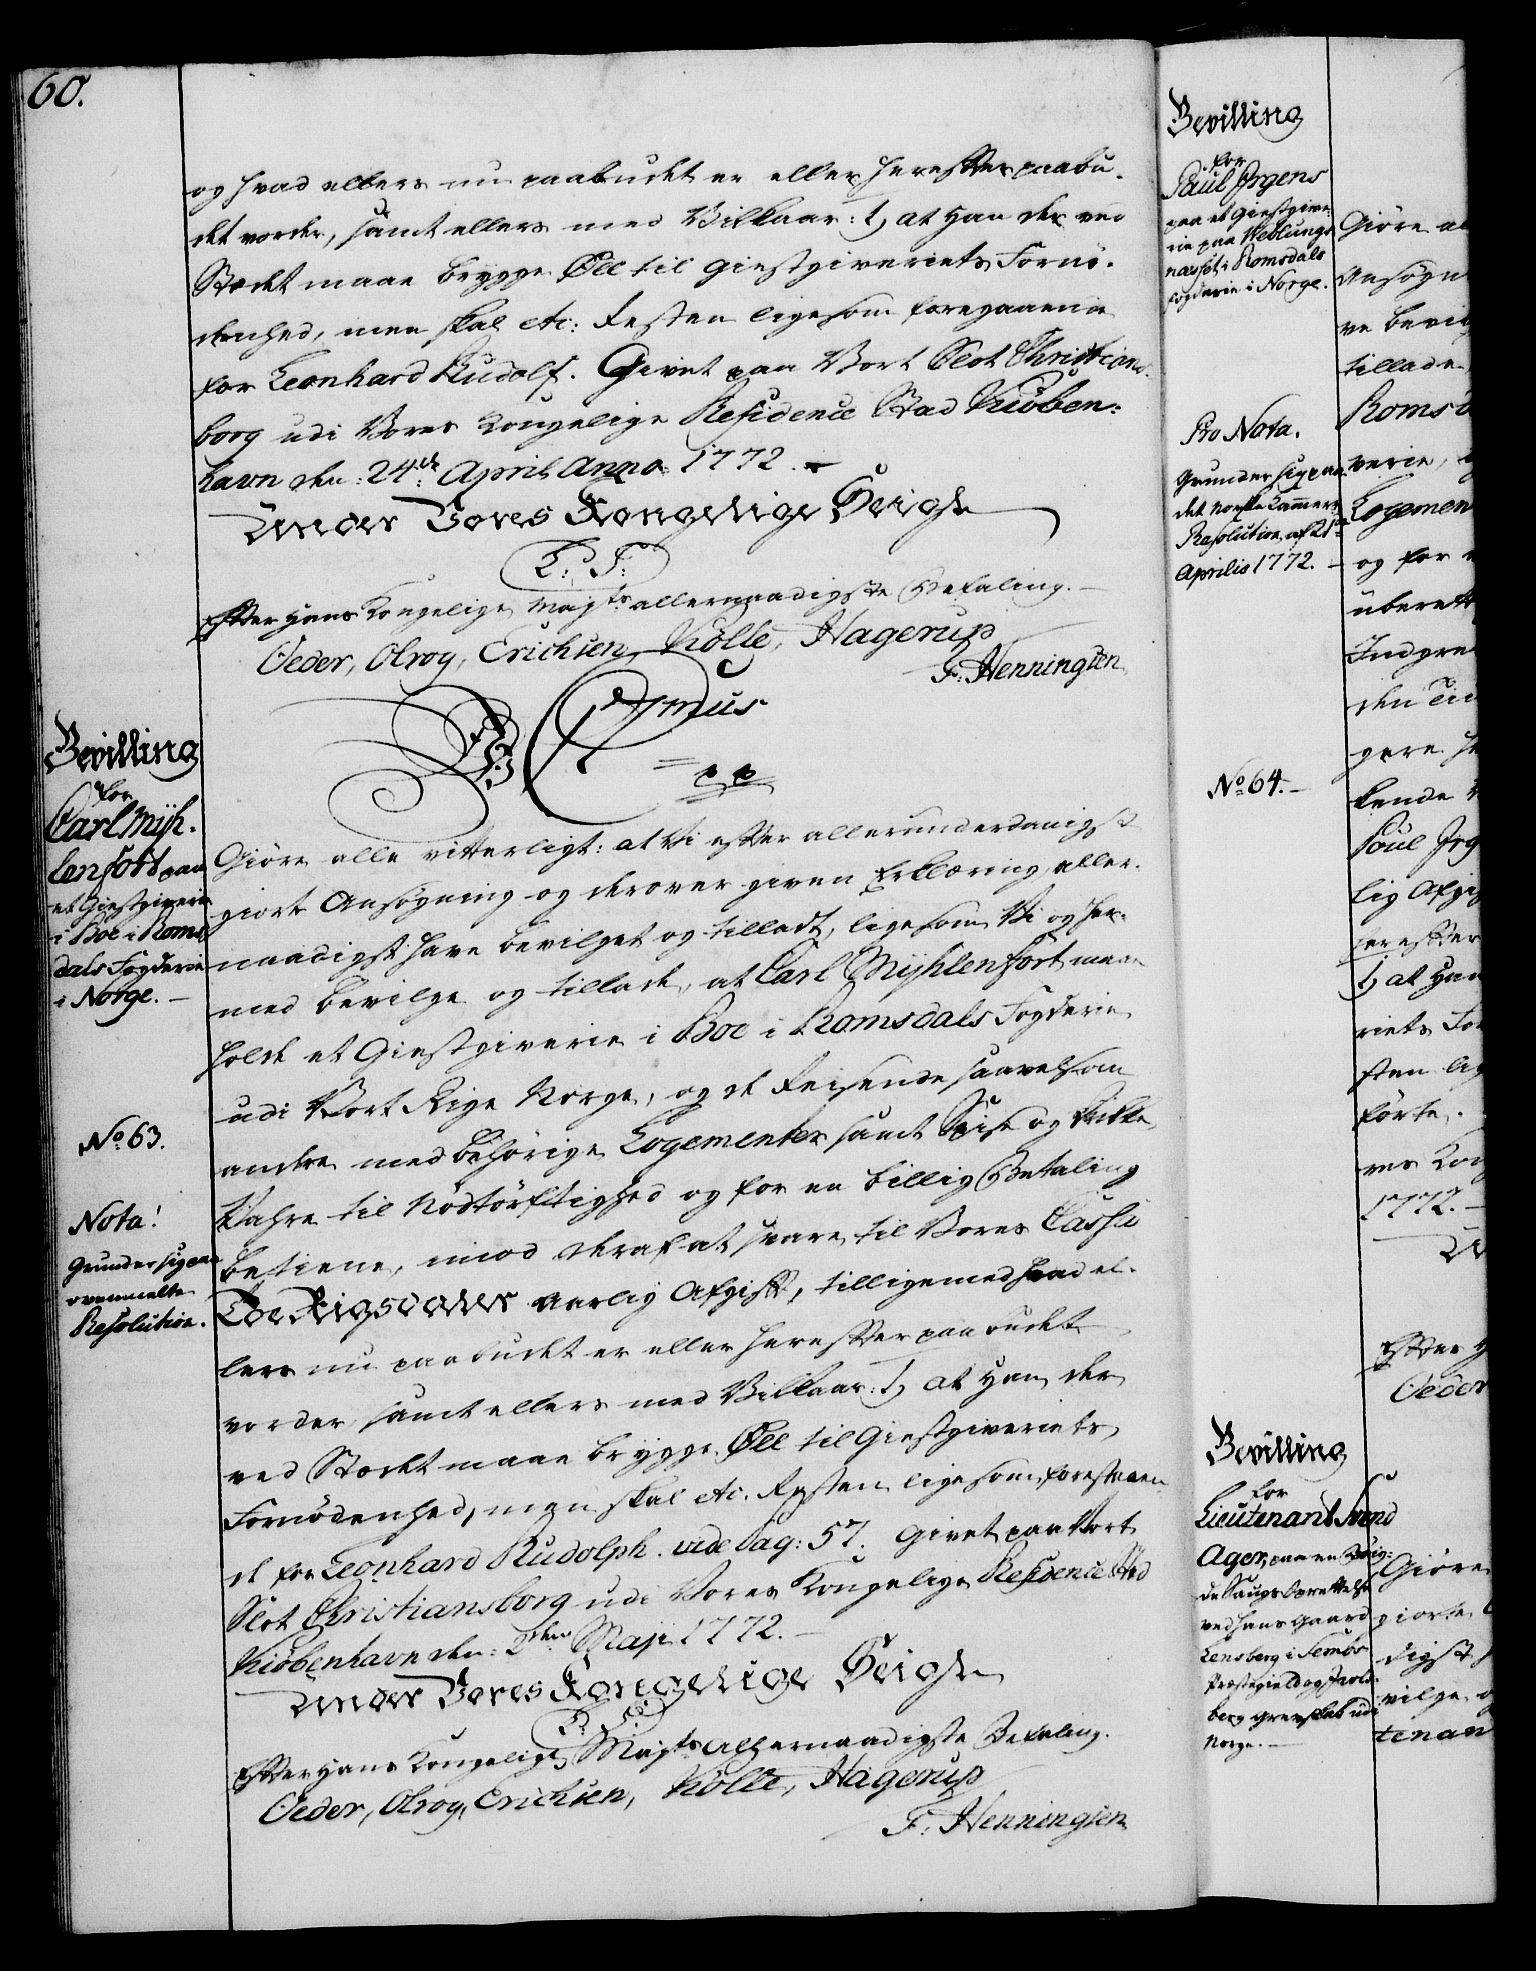 60.
og hvad ellers nu paabudet er eller herefter paabu-
det vorder, samt ellers med Vilkaar: 1, at Han der ved
Stædet maae brygge Øll til Giestgiveriets Fornö-
denhed, men skal etc: Resten ligesom foregaaende
for Leonhard Rudolf. Givet paa Vort Slot Christians-
borg udi Vores Kongelige Residence Stad Kiöben-
havn den: 24de April Anno 1772. —
Under Vores Kongelige Seigle
L: S:
Efter Hans Kongelige Mayts allernaadigste Befaling. —
Oeder, Olrog, Erichsen, Kölle, Hagerup
F: Henningsen
Bevilling
for
Carl Mÿh-
lenfort paa
et Giestgiverie
i Boe i Roms-
dals Fogderie
i Norge. —
No 63.
Nota!
Grunder sig paa
ovenmelte
Resolution.
Wii C 7mus
= pp
Giöre alle vitterligt: at Vi efter allerunderdanigst
giort Ansögning og derover given Erklæring, aller-
naadigst have bevilget og tilladt, ligesom Vi og her-
med bevilge og tillade, at Carl Mÿhlenfort maae
holde et Giestgiverie i Boe i Romsdals Fogderie
udi Vort Rige Norge, og de Reisende saavelsom
andre med behörige Logementer samt Spise og Drikke
Vahre til Nödtörftighed og for en billig Betaling
betiene, imod deraf at svare til Vores Cassa
Toe Rigsdaler aarlig Afgift, tilligemed hvad el-
lers nu paabudet er eller herefter paabudet
vorder, samt ellers med Vilkaar: 1, at Han der
ved Stædet maae brygge Øll til Giestgiveriets
Fornödenhed, men skal etc. Resten ligesom forestaaen-
de for Leonhard Rudolph. vide pag: 57. Givet paa Vort
Slot Christiansborg udi Vores Kongelige Residence Stad
Kiöbenhavn den: 2den Maji 1772. —
Under Vores Kongelige Seigle
L: S:
Efter Hans Kongelige Mayts allernaadigste Befaling.
Oeder, Olrog, Erichsen, Kölle, Hagerup
F: Henningsen
Bevilling
for
Paul Jrgens
paa et Giestgive-
rie paa Veblungs-
næsset i Romsdals
Fogderie i Norge.
Pro Nota.
Grunder sig paa
det norske Cammers
Resolution af 21de
Aprilis 1772. —
No 64. —
Bevilling
for
Lieutenant Svend
Ager, paa en
Saugs Oprettelse
ved hans Gaard
i Sembs
Præstegield og Jarls-
berg Grevskab udi
Norge. —
Giöre al
Ansögn
ve bevi
tillade
Roms
verie,
Logemen
og for
uberett
Indgre
den
gere
kende
Poul Jrg
lig Afgi
herefter
1, at Han
riets For
sten lig
förte.
res Kon
1772. —
Un
Efter H
Oeder
Giöre
giorte
digst
vilge o
tenan